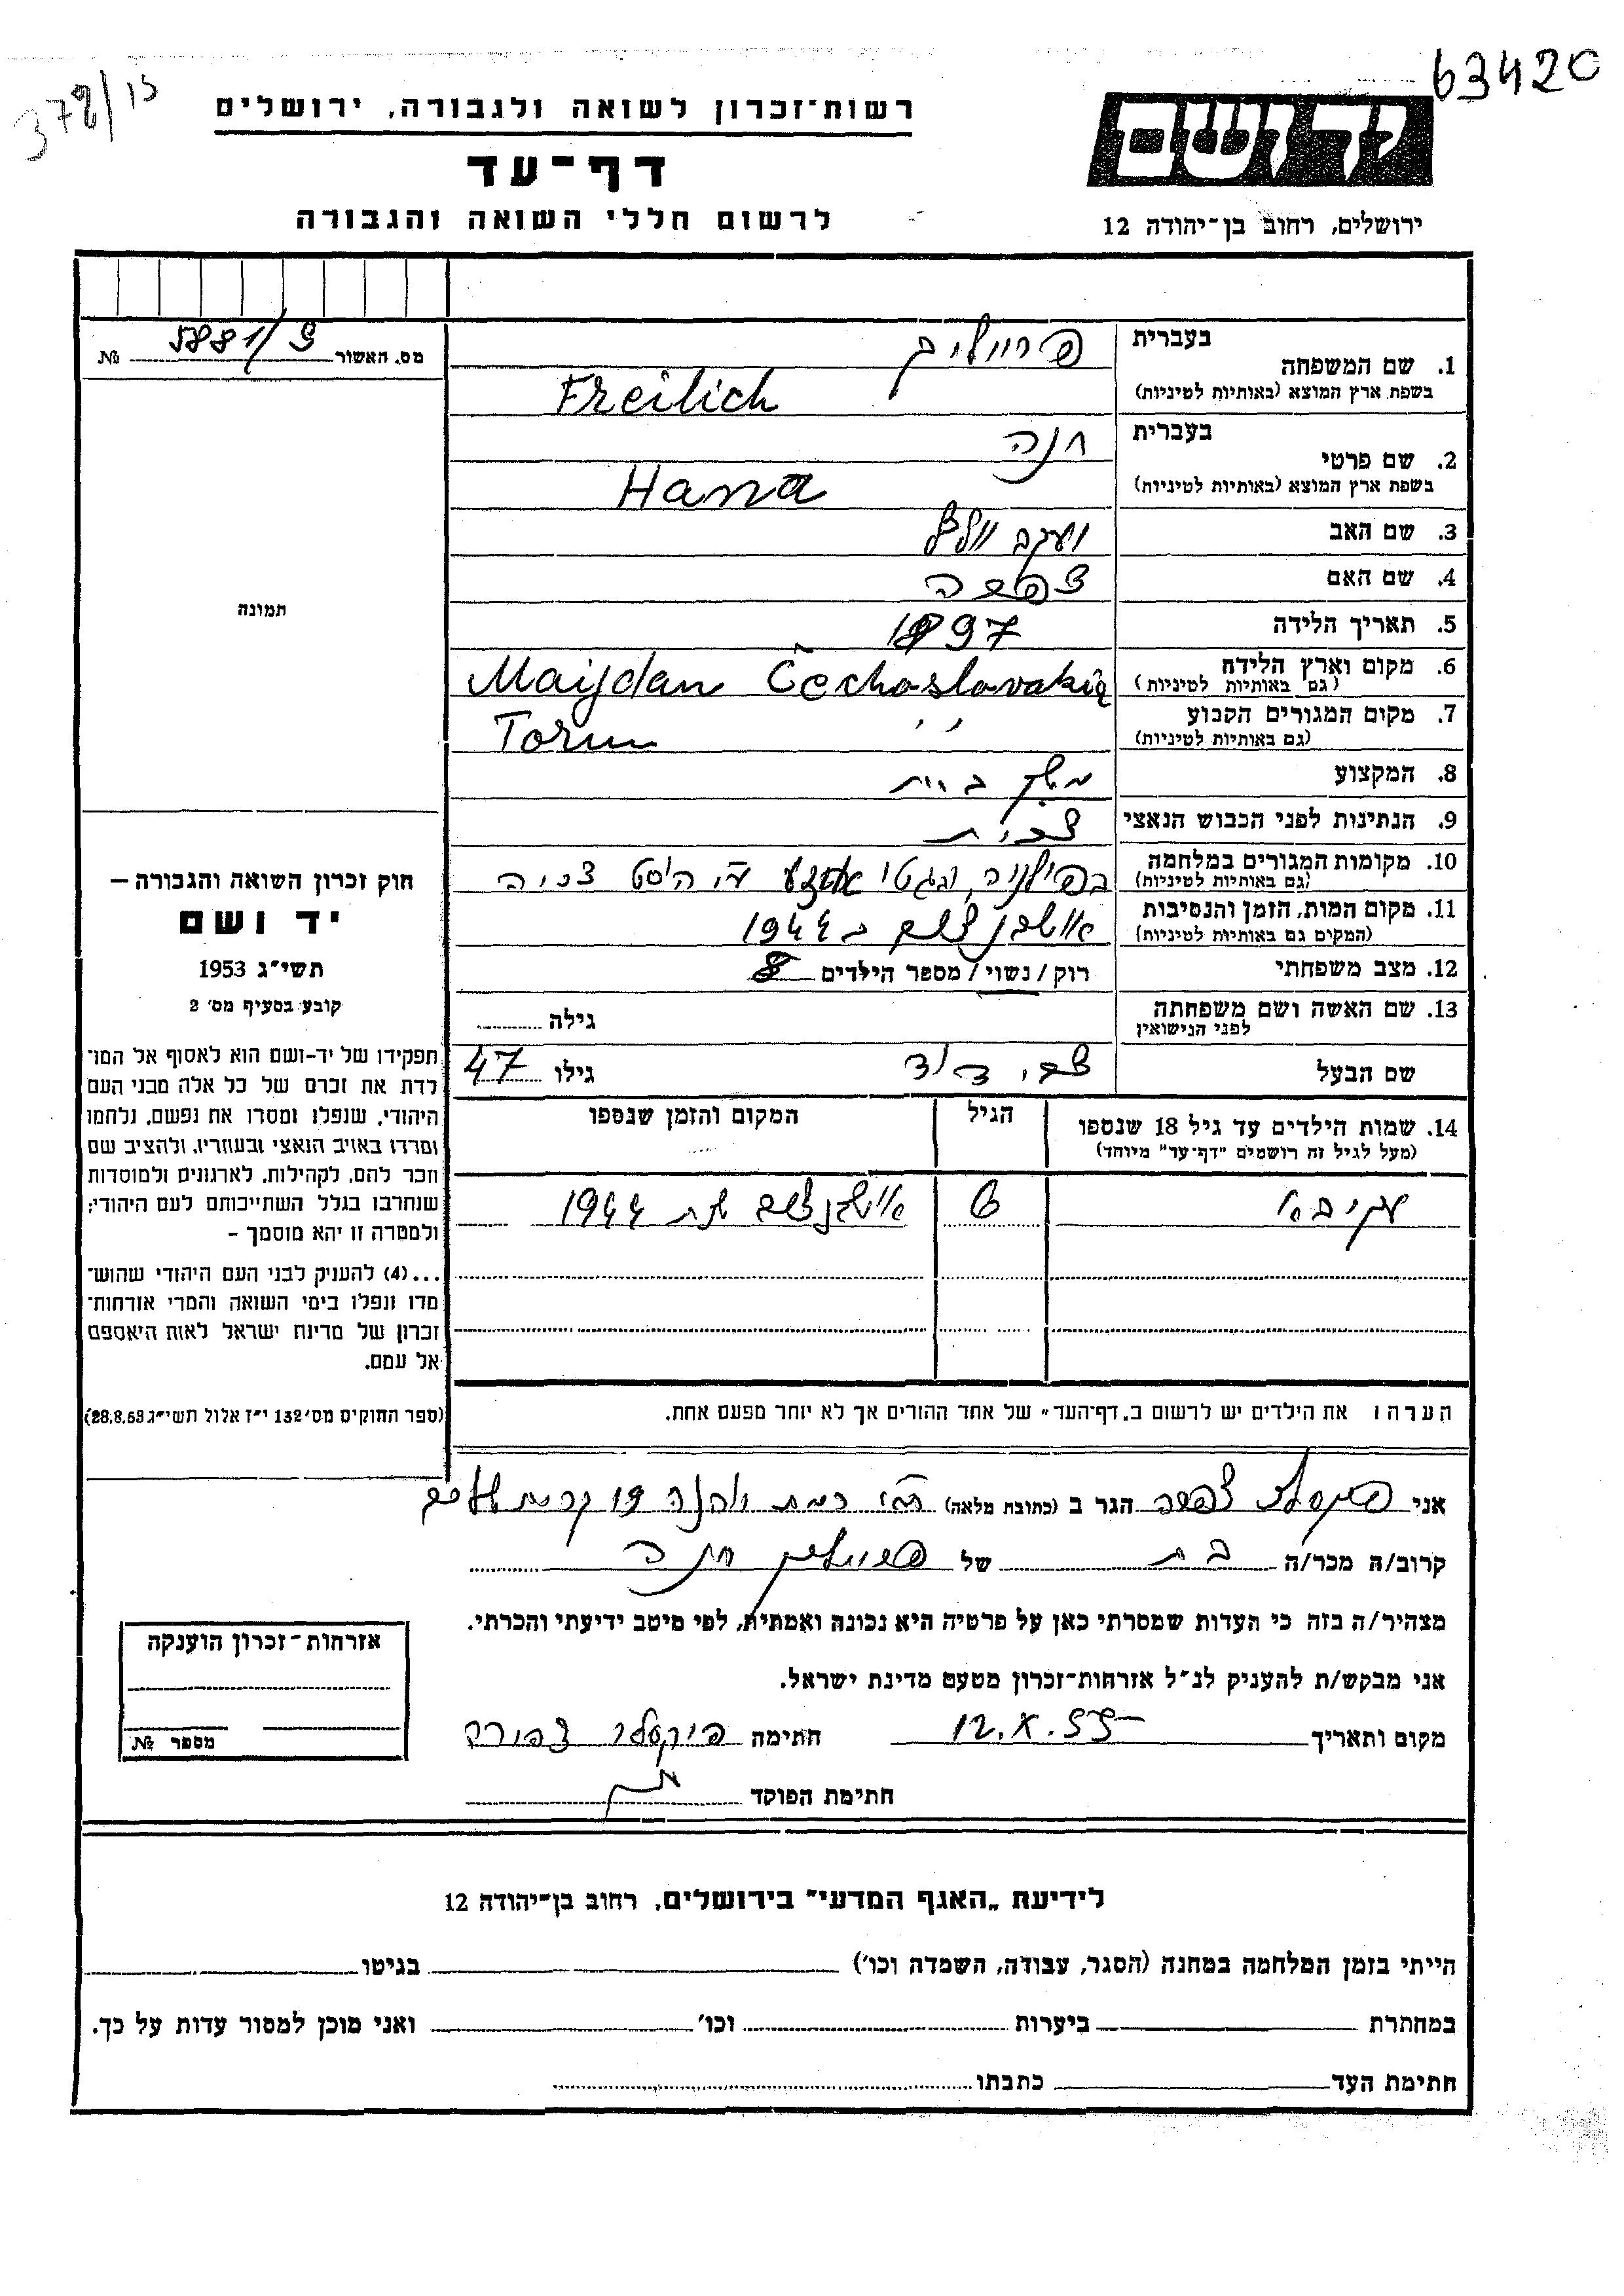 63420
378/15
רשות־זכרון לשואה ולגבורה, ירושלים
דף־עד
לרשום חללי השואה והגבורה
יד ושם
ירושלים, רחוב בן־יהודה 12
מס. האשור 5881/9 №
תמונה
חוק זכרון השואה והגבורה —
יד ושם
תשי״ג 1953
קובע בסעיף מס׳ 2
תפקידו של יד-ושם הוא לאסוף אל המו־
לדת את זכרם של כל אלה מבני העם
היהודי, שנפלו ומסרו את נפשם, נלחמו
ומרדו באויב הנאצי ובעוזריו, ולהציב שם
וזכר להם, לקהילות, לארגונים ולמוסדות
שנחרבו בגלל השתייכותם לעם היהודי;
ולמטרה זו יהא מוסמך —
...(4) להעניק לבני העם היהודי שהוש־
מדו ונפלו בימי השואה והמרי אזרחות־
זכרון של מדינת ישראל לאות היאספם
אל עמם.
(ספר החוקים מס׳ 132 י״ז אלול תשי״ג 28.8.53)
1. שם המשפחה בעברית פרייליך
בשפת ארץ המוצא (באותיות לטיניות) Freilich
2. שם פרטי בעברית חנה
בשפת ארץ המוצא (באותיות לטיניות) Hana
3. שם האב יעקב
4. שם האם
5. תאריך הלידה 1897
6. מקום וארץ הלידה (גם באותיות לטיניות) Maijdan Čechoslovakia
7. מקום המגורים הקבוע (גם באותיות לטיניות) Torun ״
8. המקצוע משק בית
9. הנתינות לפני הכבוש הנאצי
10. מקומות המגורים במלחמה (גם באותיות לטיניות)
11. מקום המות, הזמן והנסיבות (המקום גם באותיות לטיניות) ב 1944
12. מצב משפחתי רוק / נשוי / מספר הילדים 8
13. שם האשה ושם משפחתה לפני הנישואין גילה
שם הבעל צבי דוד גילו 47
14. שמות הילדים עד גיל 18 שנספו (מעל לגיל זה רושמים ״דף־עד״ מיוחד) הגיל המקום והזמן שנספו
עקיבא 6 שנת 1944
הערה: את הילדים יש לרשום ב„דף־העד״ של אחד ההורים אך לא יותר מפעם אחת.
אני הגר ב (כתובת מלאה) 19
קרוב/ה מכר/ה בת של פריילין חנה
מצהיר/ה בזה כי העדות שמסרתי כאן על פרטיה היא נכונה ואמתית, לפי מיטב ידיעתי והכרתי.
אני מבקש/ת להעניק לנ״ל אזרחות־זכרון מטעם מדינת ישראל.
מקום ותאריך 12.X.55 חתימה פיקסלר צפורה
חתימת הפוקד
אזרחות־זכרון הוענקה
מספר №
לידיעת „האגף המדעי״ בירושלים, רחוב בן־יהודה 12
הייתי בזמן המלחמה במחנה (הסגר, עבודה, השמדה וכו׳) בגיטו
במחתרת ביערות וכו׳ ואני מוכן למסור עדות על כך.
חתימת העד כתבתו